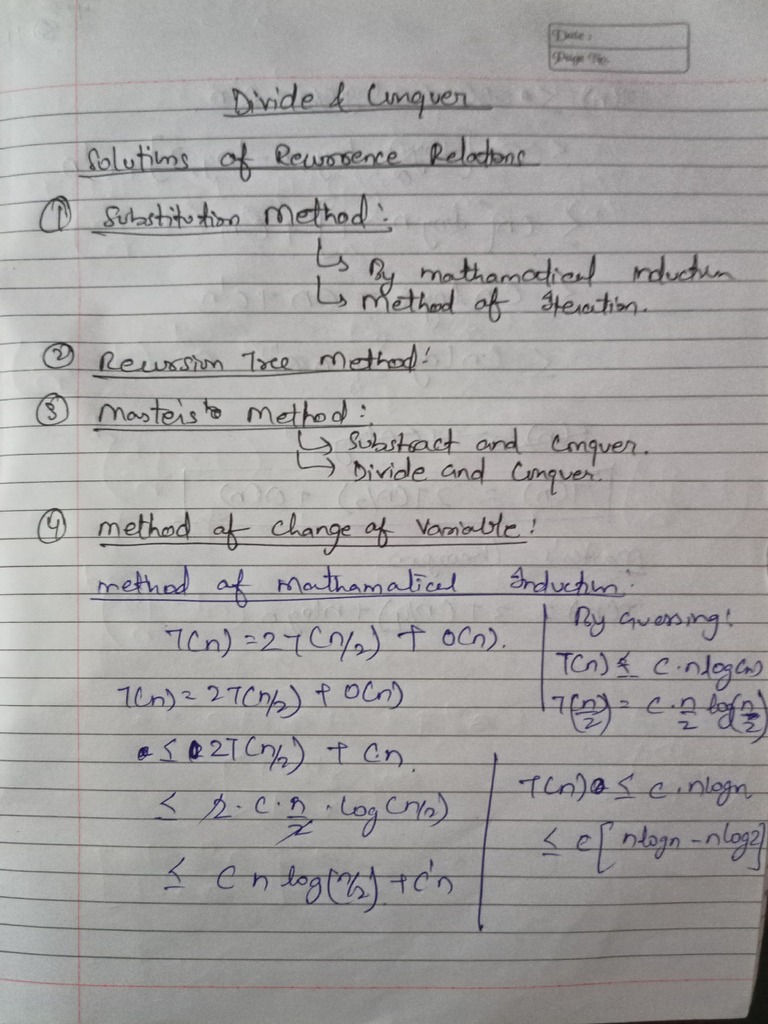 Date :
Page No.
Divide & Conquer
Solutions of Recurrence Relations
① Substitution Method :
↳ By mathamadical induction
↳ Method of Iteration.
② Recursion Tree Method :
③ Master's Method :
↳ Substract and Conquer.
↳ Divide and Conquer.
④ method of change of Variable :
method of Mathamatical Induction :
T(n) = 2T(n/2) + O(n).
T(n) = 2T(n/2) + O(n)
≤ 2T(n/2) + C.n
≤ 2 · C · n/2 · log(n/2)
≤ C n log(n/2) + C'n
By Guessing :
T(n) ≤ C · n log(n)
T(n/2) = C · n/2 log(n/2)
T(n) ≤ C · n log n
≤ C [ n log n - n log 2 ]